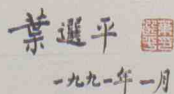 葉選平
一九九一年一月